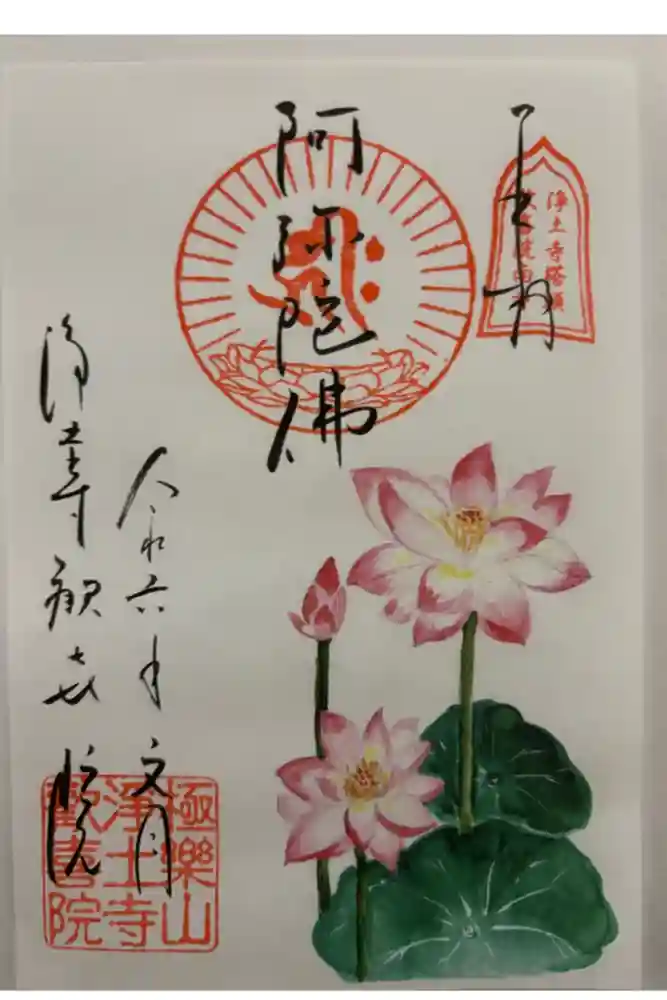 奉拝
浄土寺塔頭
阿弥陀佛
令和六年文月
浄土寺歓喜院
極樂山
淨土寺
歡喜院